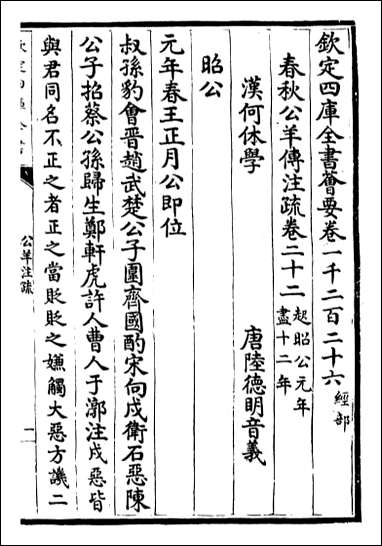 欽定四庫全書薈要卷一千二百二十六 經部
春秋公羊傳注疏卷二十二 起昭公元年盡十二年
漢何休學 唐陸德明音義
昭公
元年春王正月公即位
叔孫豹會晉趙武楚公子圍齊國酌宋向戌衛石惡陳
公子招蔡公孫歸生鄭軒虎許人曹人于漷注戌惡皆
與君同名不正之者正之當貶貶之嫌觸大惡方譏二
公羊注疏
一